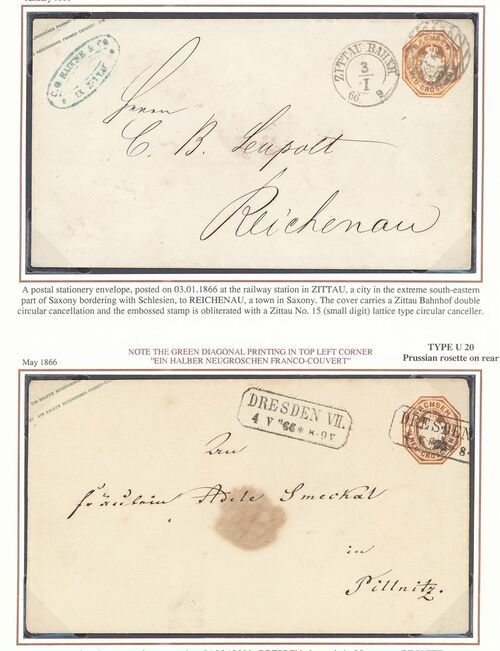 NEUGROSCHEN FRANCO-COUVERT
ZITTAU BAHNH
3
I
66. 9
Herrn
C. B. Leupolt
Reichenau
A postal stationery envelope, posted on 03.01.1866 at the railway station in ZITTAU, a city in the extreme south-eastern
part of Saxony bordering with Schlesien, to REICHENAU, a town in Saxony. The cover carries a Zittau Bahnhof double
circular cancellation and the embossed stamp is obliterated with a Zittau No. 15 (small digit) lattice type circular canceller.
May 1866
NOTE THE GREEN DIAGONAL PRINTING IN TOP LEFT CORNER
"EIN HALBER NEUGROSCHEN FRANCO-COUVERT"
TYPE U 20
Prussian rosette on rear
DRESDEN VII.
4 V 66 * 8-9V
SACHSEN
DRESDEN
An
Fräulein Adele Smeckal
in
Pillnitz.